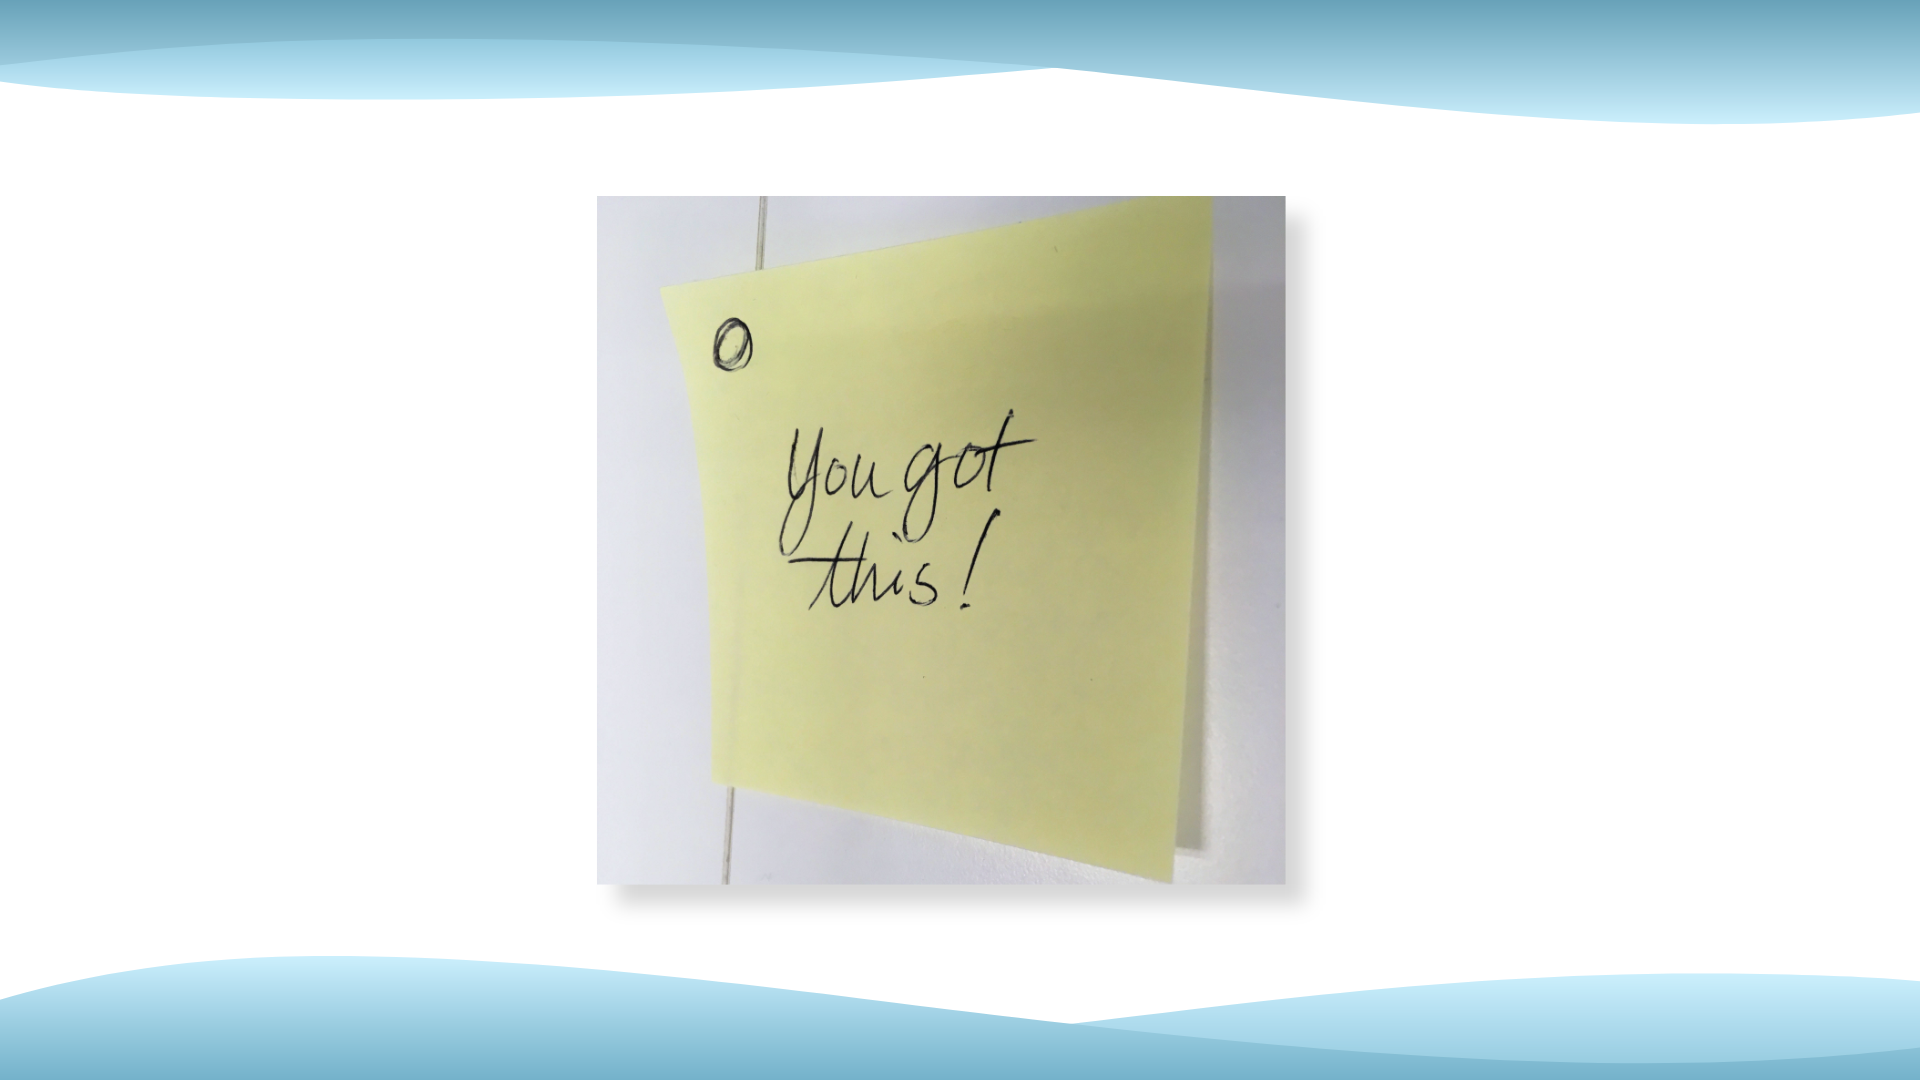 You got
this!